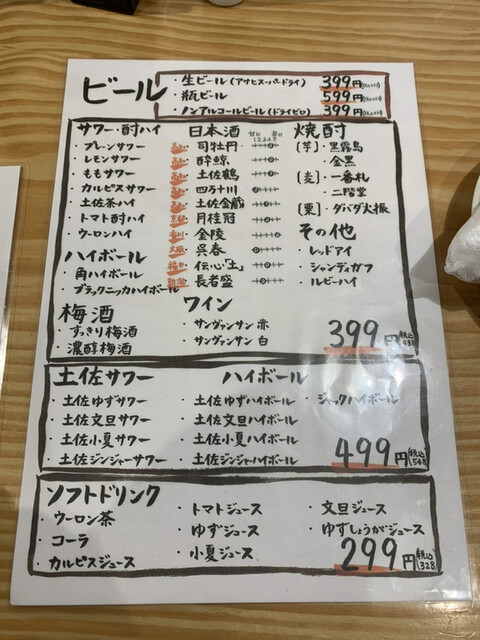 ビール
・生ビール(アサヒスーパードライ) 399円
・瓶ビール 599円
・ノンアルコールビール(ドライゼロ) 399円
サワー・酎ハイ
・プレーンサワー
・レモンサワー
・ももサワー
・カルピスサワー
・土佐茶ハイ
・トマト酎ハイ
・ウーロンハイ
ハイボール
・角ハイボール
・ブラックニッカハイボール
梅酒
・すっきり梅酒
・濃醇梅酒
日本酒 甘口 辛口
12345
・司牡丹
・酔鯨
・土佐鶴
・四万十川
・土佐金蔵
京都・月桂冠
香川・金陵
大阪・呉春
福井・伝心「土」
新潟・長者盛
ワイン
・サンヴァンサン 赤
・サンヴァンサン 白
焼酎
(芋)・黒霧島
・金黒
(麦)・一番札
・二階堂
(栗)・ダバダ火振
その他
・レッドアイ
・シャンディガフ
・ルビーハイ
399円(税込
土佐サワー
・土佐ゆずサワー
・土佐文旦サワー
・土佐小夏サワー
・土佐ジンジャーサワー
ハイボール
・土佐ゆずハイボール
・土佐文旦ハイボール
・土佐小夏ハイボール
・土佐ジンジャハイボール
・ジャックハイボール
499円(税込
548)
ソフトドリンク
・ウーロン茶
・コーラ
・カルピスジュース
・トマトジュース
・ゆずジュース
・小夏ジュース
・文旦ジュース
・ゆずしょうがジュース
299円(税込
328)